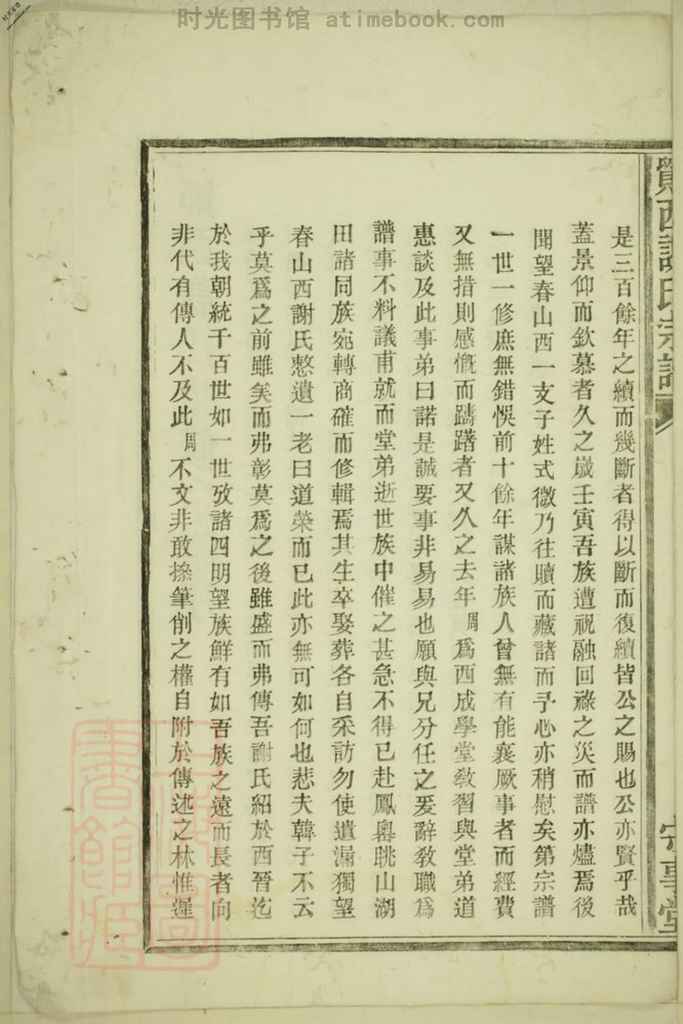 时光图书馆 atimebook.com
西謝氏宗譜
是三百餘年之續而幾斷者得以斷而復續皆公之賜也公亦賢乎哉
蓋景仰而欽慕者久之歲壬寅吾族遭祝融回祿之災而譜亦燼焉後
聞望春山西一支子姓式微乃往贖而藏諸而予心亦稍慰矣第宗譜
一世一修庶無錯悞前十餘年謀諸族人曾無有能襄厥事者而經費
又無措則感慨而躊躇者又久之去年周爲西成學堂教習與堂弟道
惠談及此事弟曰諾是誠要事非易易也願與兄分任之爰辭教職爲
譜事不料議甫就而堂弟逝世族中催之甚急不得已赴鳳奧眺山湖
田諸同族宛轉商確而修輯焉其生卒娶葬各自采訪勿使遺漏獨望
春山西謝氏憖遺一老曰道榮而已此亦無可如何也悲夫韓子不云
乎莫爲之前雖美而弗彰莫爲之後雖盛而弗傳吾謝氏紹於西晉迄
於我朝統千百世如一世攷諸四明望族鮮有如吾族之遠而長者向
非代有傳人不及此周不文非敢操筆削之權自附於傳述之林惟遲